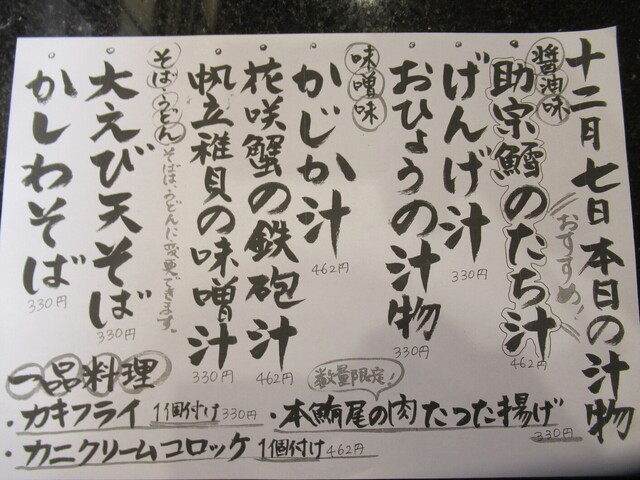 十二月七日本日の汁物
おすすめ!
醤油味
助宗鱈のたち汁
462円
げんげ汁
330円
おひょうの汁物
330円
味噌味
かじか汁
462円
花咲蟹の鉄砲汁
462円
帆立稚貝の味噌汁
330円
そば・うどん
そばは、うどんに変更できます。
大えび天そば
330円
かしわそば
330円
一品料理
・カキフライ 1個付け 330円
数量限定!
・本鮪尾の肉たつた揚げ
330円
・カニクリームコロッケ 1個付け 462円